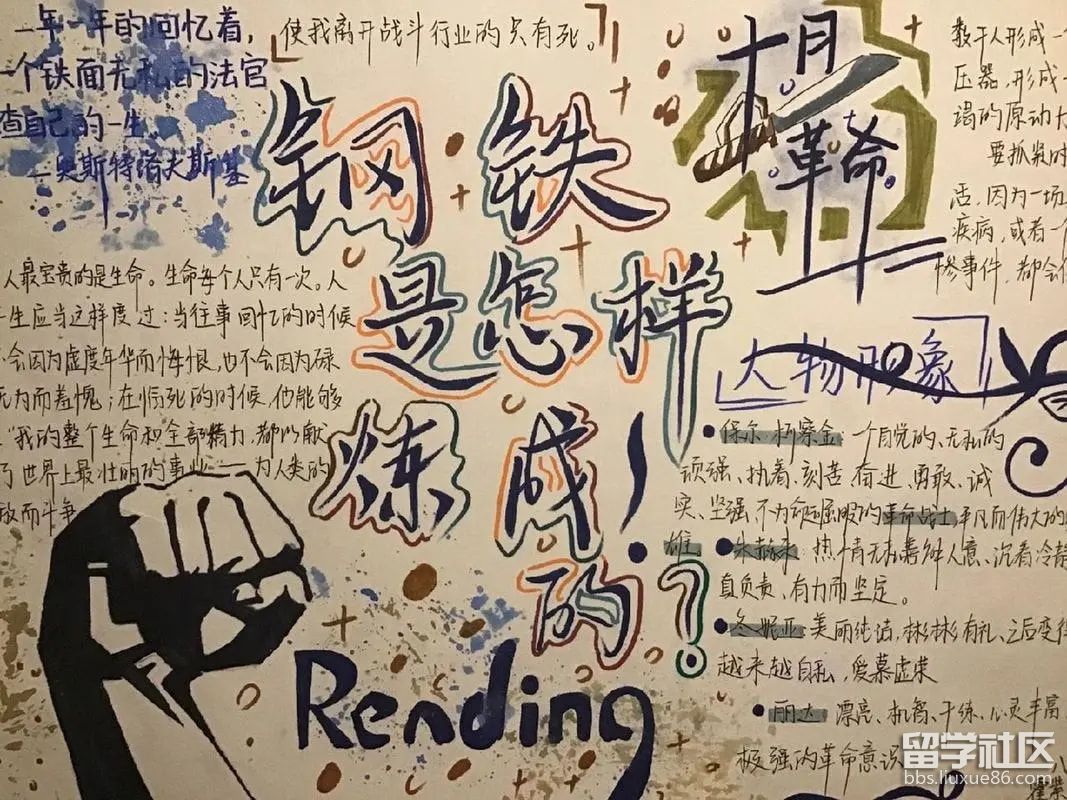 年一年的回忆着,
一个铁面无私的法官
查自己的一生
—奥斯特洛夫斯基
「使我离开战斗行业的只有死。」
钢铁
是怎样
炼成
的!?
十月
革命
数千人形成一
压器,形成一
竭的原动力
要抓紧时
活,因为一场
疾病,或者一
惨事件,都会
人最宝贵的是生命。生命每个人只有一次。人
生应当这样度过:当往事回忆的时候
会因为虚度年华而悔恨,也不会因为碌
无为而羞愧;在临死的时候,他能够
"我的整个生命和全部精力,都以献
了世界上最壮丽的事业——为人类的
放而斗争
人物形象
•保尔·柯察金 一个自觉的、无私的
顽强、执着、刻苦奋进、勇敢、诚
实、坚强、不为命运屈服的革命战士 平凡而伟大的
雄 •朱赫来:热情无私善解人意、沉着冷静
真负责、有力而坚定。
•冬妮亚:美丽纯洁,彬彬有礼、之后变得
越来越自私,爱慕虚荣
•丽达 漂亮、机智、干练、心灵丰富
极强的革命意识
Rending
留学社区
bbs.liuxue86.com